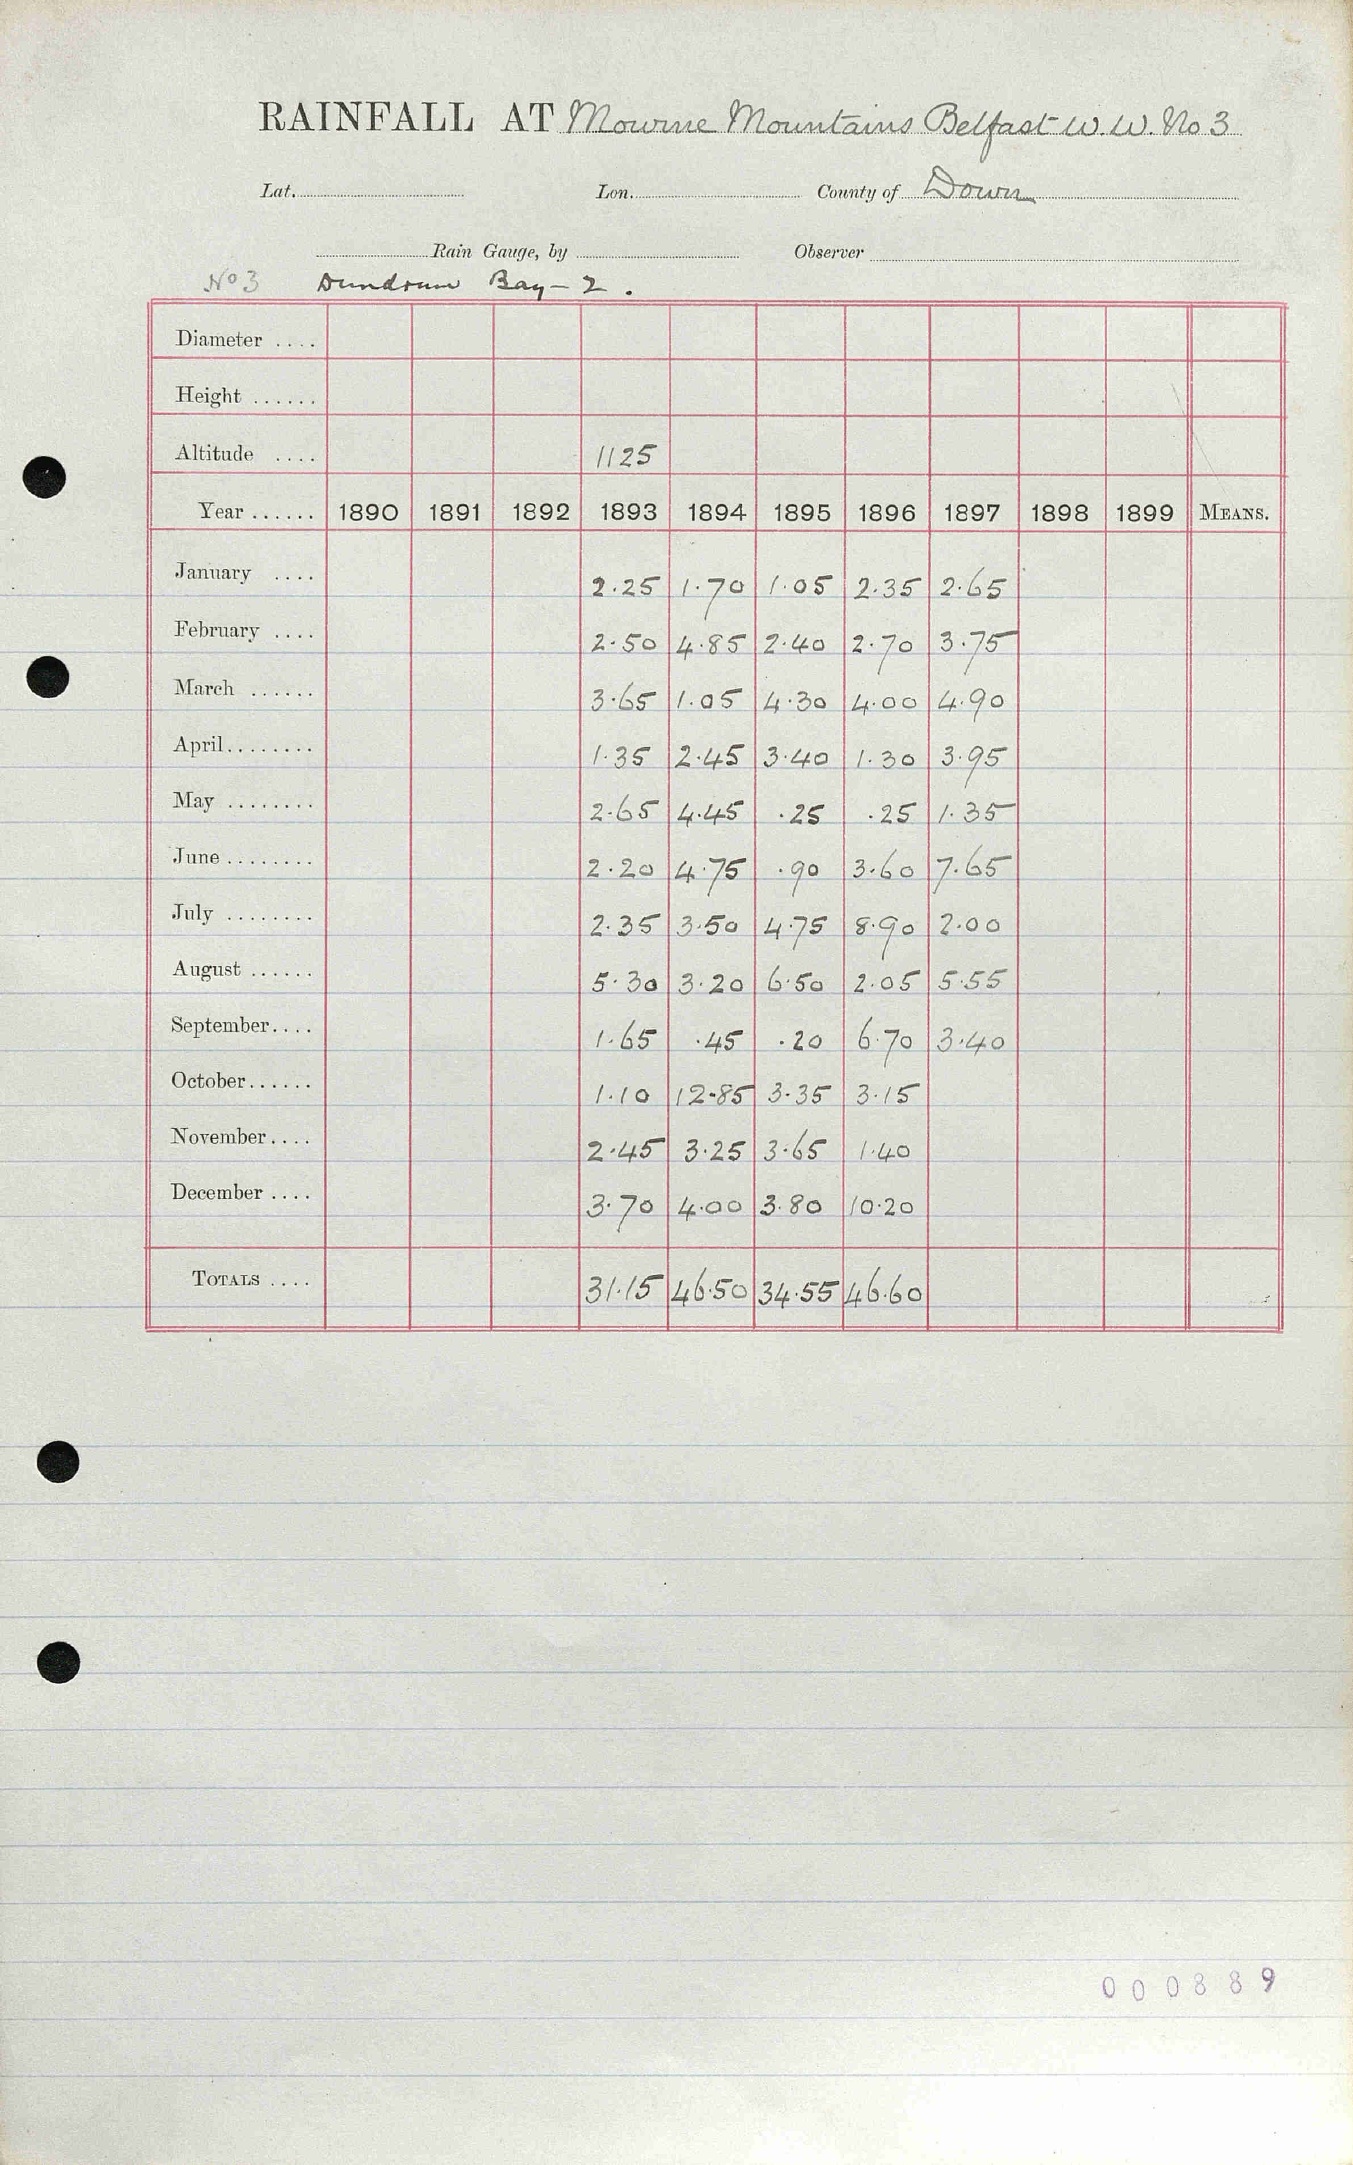 RAINFALL AT Mourne Mountains Belfast W.W. No 3
Lat. Lon. County of Down
Rain Gauge, by Observer
No 3 Dundrum Bay - 2 .
Diameter ....
Height ......
Altitude .... 1125
Year ...... 1890 1891 1892 1893 1894 1895 1896 1897 1898 1899 MEANS.
January .... 2.25 1.70 1.05 2.35 2.65
February .... 2.50 4.85 2.40 2.70 3.75
March ...... 3.65 1.05 4.30 4.00 4.90
April........ 1.35 2.45 3.40 1.30 3.95
May ........ 2.65 4.45 .25 .25 1.35
June ........ 2.20 4.75 .90 3.60 7.65
July ........ 2.35 3.50 4.75 8.90 2.00
August ...... 5.30 3.20 6.50 2.05 5.55
September.... 1.65 .45 .20 6.70 3.40
October...... 1.10 12.85 3.35 3.15
November.... 2.45 3.25 3.65 1.40
December .... 3.70 4.00 3.80 10.20
TOTALS .... 31.15 46.50 34.55 46.60
000889